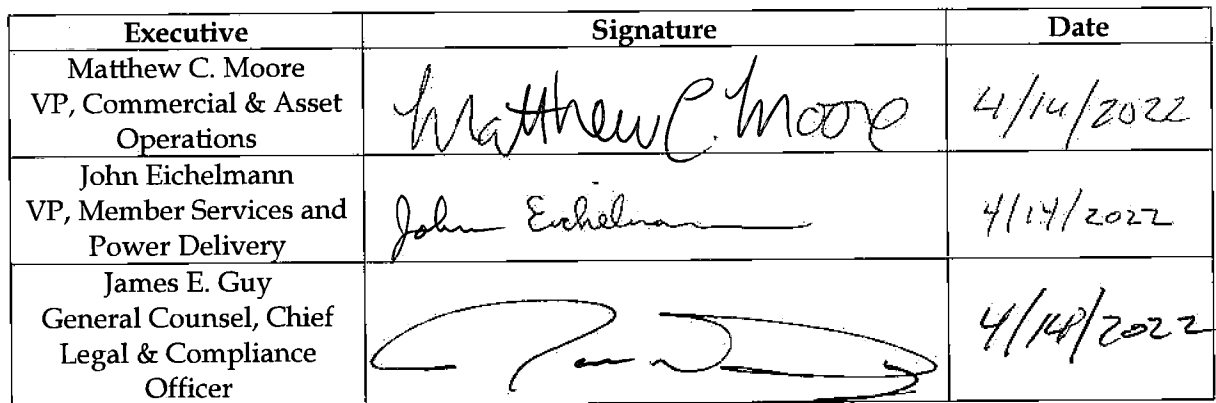 Executive Signature Date
Matthew C. Moore
VP, Commercial & Asset
Operations
Matthew C. Moore
4/14/2022
John Eichelmann
VP, Member Services and
Power Delivery
John Eichelmann
4/14/2022
James E. Guy
General Counsel, Chief
Legal & Compliance
Officer